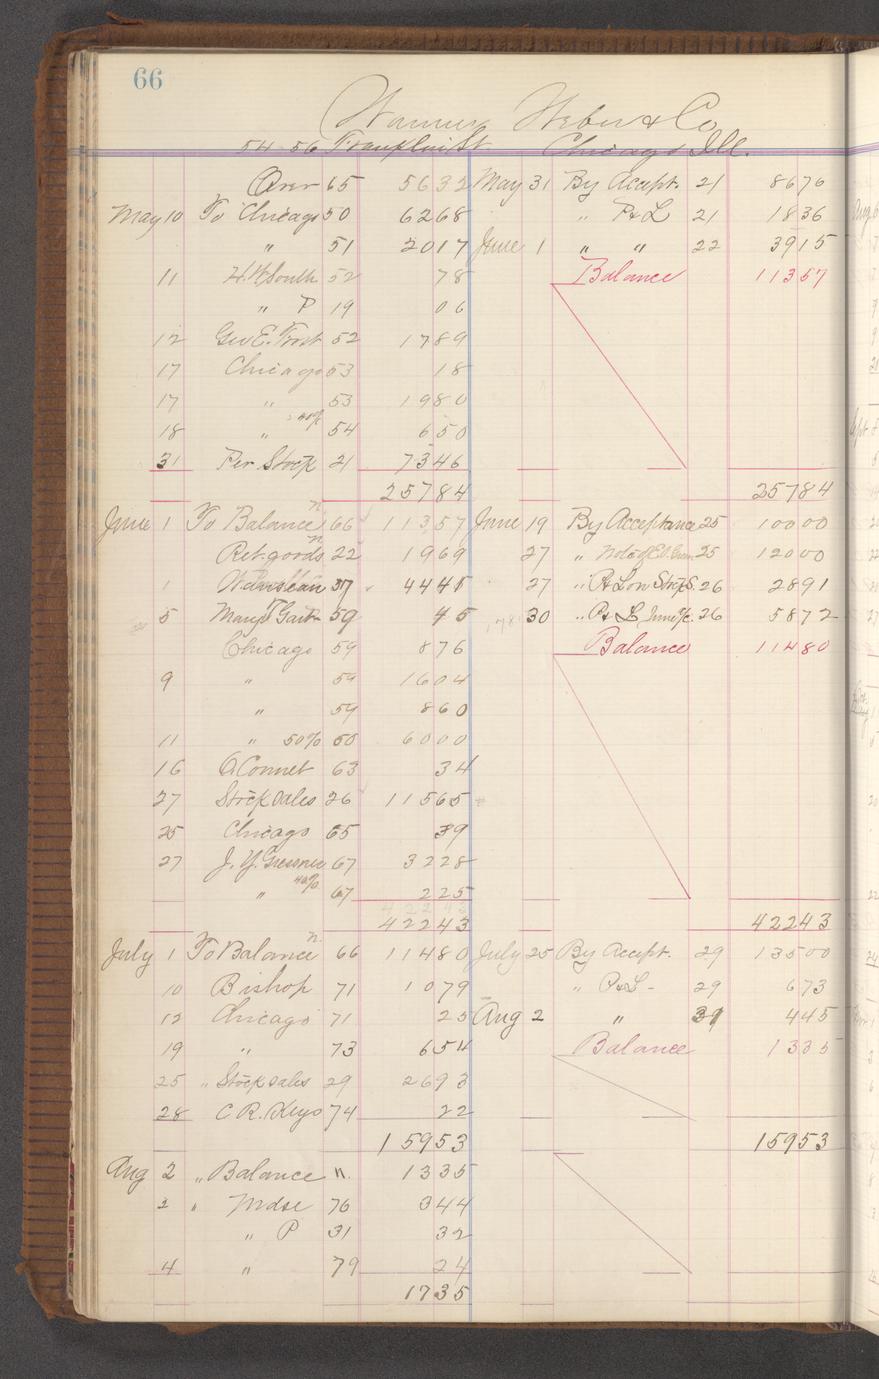 66
Warner Weber & Co
54-56 Franklin St Chicago Ill.
Over 65 5632 May 31 By Accept. 21 8676
May 10 To Chicago 50 6268 " P&L 21 1836
" 51 2017 June 1 " " 22 3915
11 H.W. South 52 78 Balance 11357
" P 19 06
12 Geo E. Frost 52 1789
17 Chicago 53 18
17 " 53 1980
18 " 40% 54 650
31 Per Stock 21 7346
25784 25784
June 1 To Balance 66 11357 June 19 By Acceptance 25 10000
Ret. goods 22 1969 27 " Note of 25 12000
1 37 4445 27 " P&L on Stock S. 26 2891
5 59 45 30 " P&L June 26 5872
Chicago 59 876 Balance 11480
9 " 59 1604
" 59 860
11 " 50% 60 6000
16 A Connet 63 34
27 Stock sales 26 11565
25 Chicago 65 39
27 J. Y. 67 3228
" 40% 67 225
42243
42243 42243
July 1 To Balance 66 11480 July 25 By Accept. 29 13500
10 Bishop 71 1079 " P&L - 29 673
12 Chicago 71 25 Aug 2 " 31 445
19 " 73 654 Balance 1335
25 " Stock sales 29 2693
28 C. R. Keys 74 22
15953 15953
Aug 2 " Balance " 1335
2 " Mdse 76 344
" P 31 32
4 " 79 24
1735